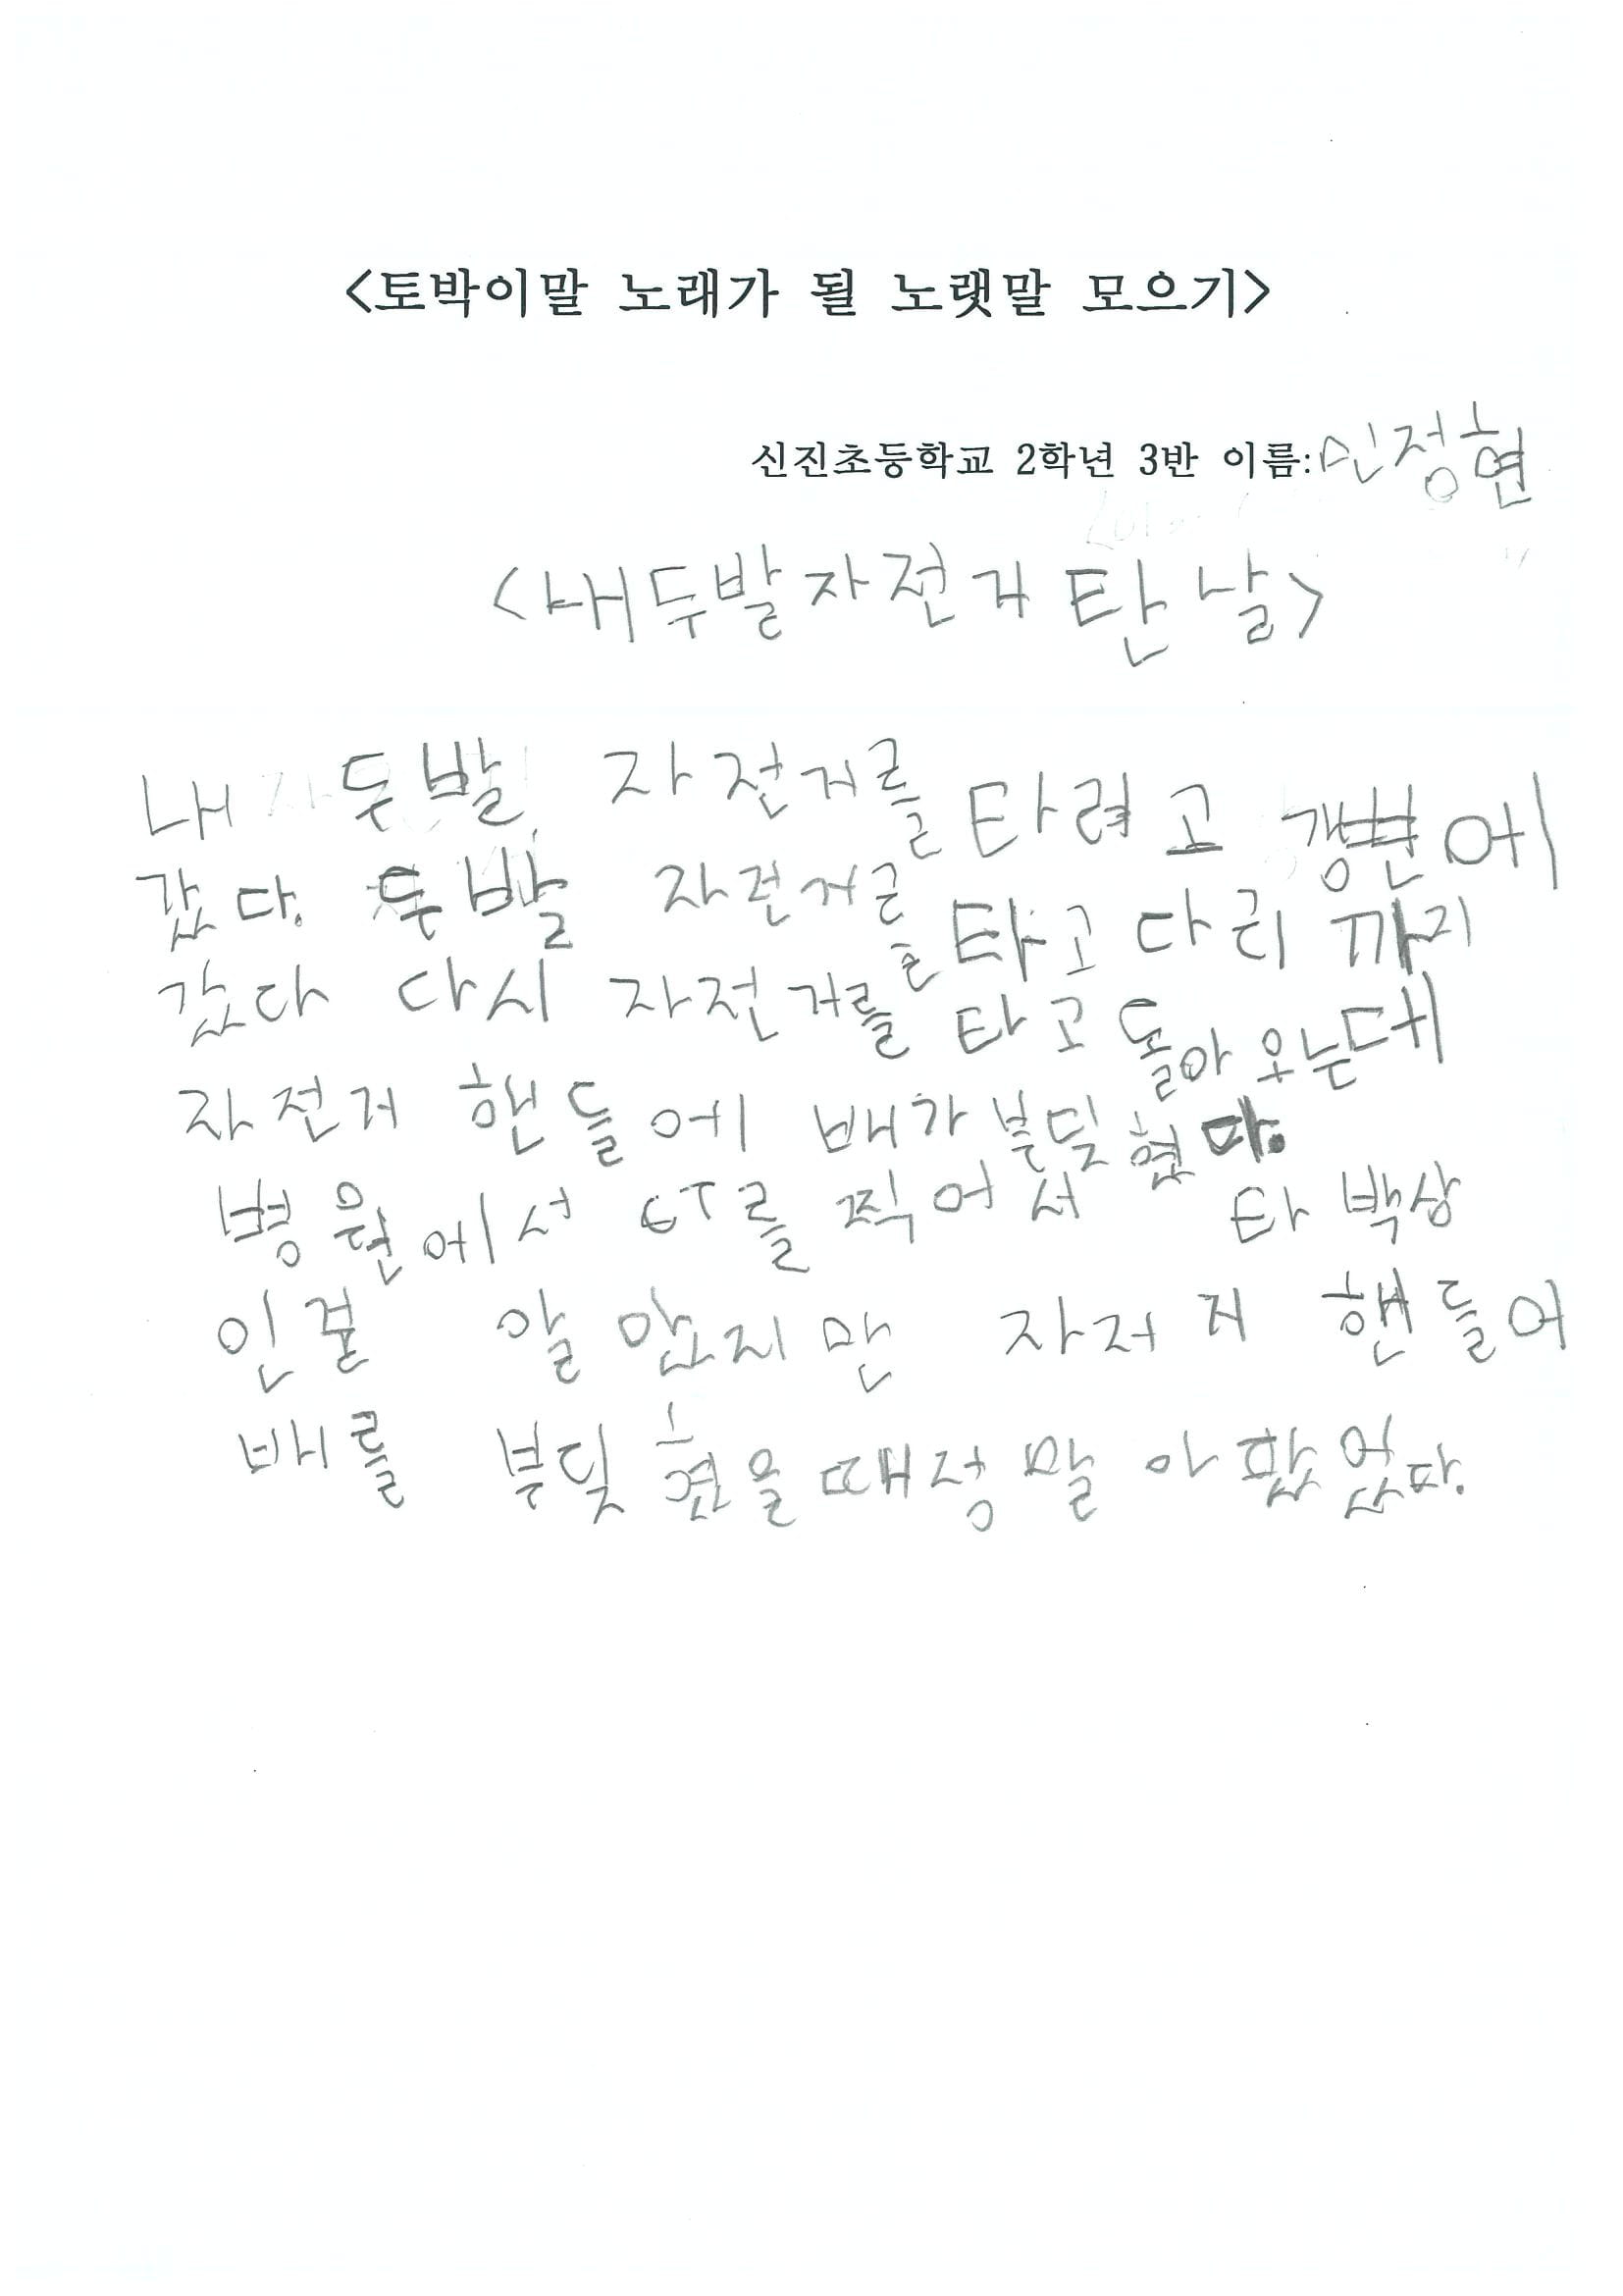 <토박이말 노래가 될 노랫말 모으기>
신진초등학교 2학년 3반 이름:민정현
<내두발자전거 탄 날>
내 두발 자전거를 타려고 강변에
갔다. 두발 자전거를 타고 다리 까지
갔다 다시 자전거를 타고 돌아 오는데
자전거 핸들에 배가 부딪혔다.
병원에서 CT를 찍어서 타박상
인걸 알았지만 자저거 핸들어
배를 부딪혔을때 정말 아팠었다.